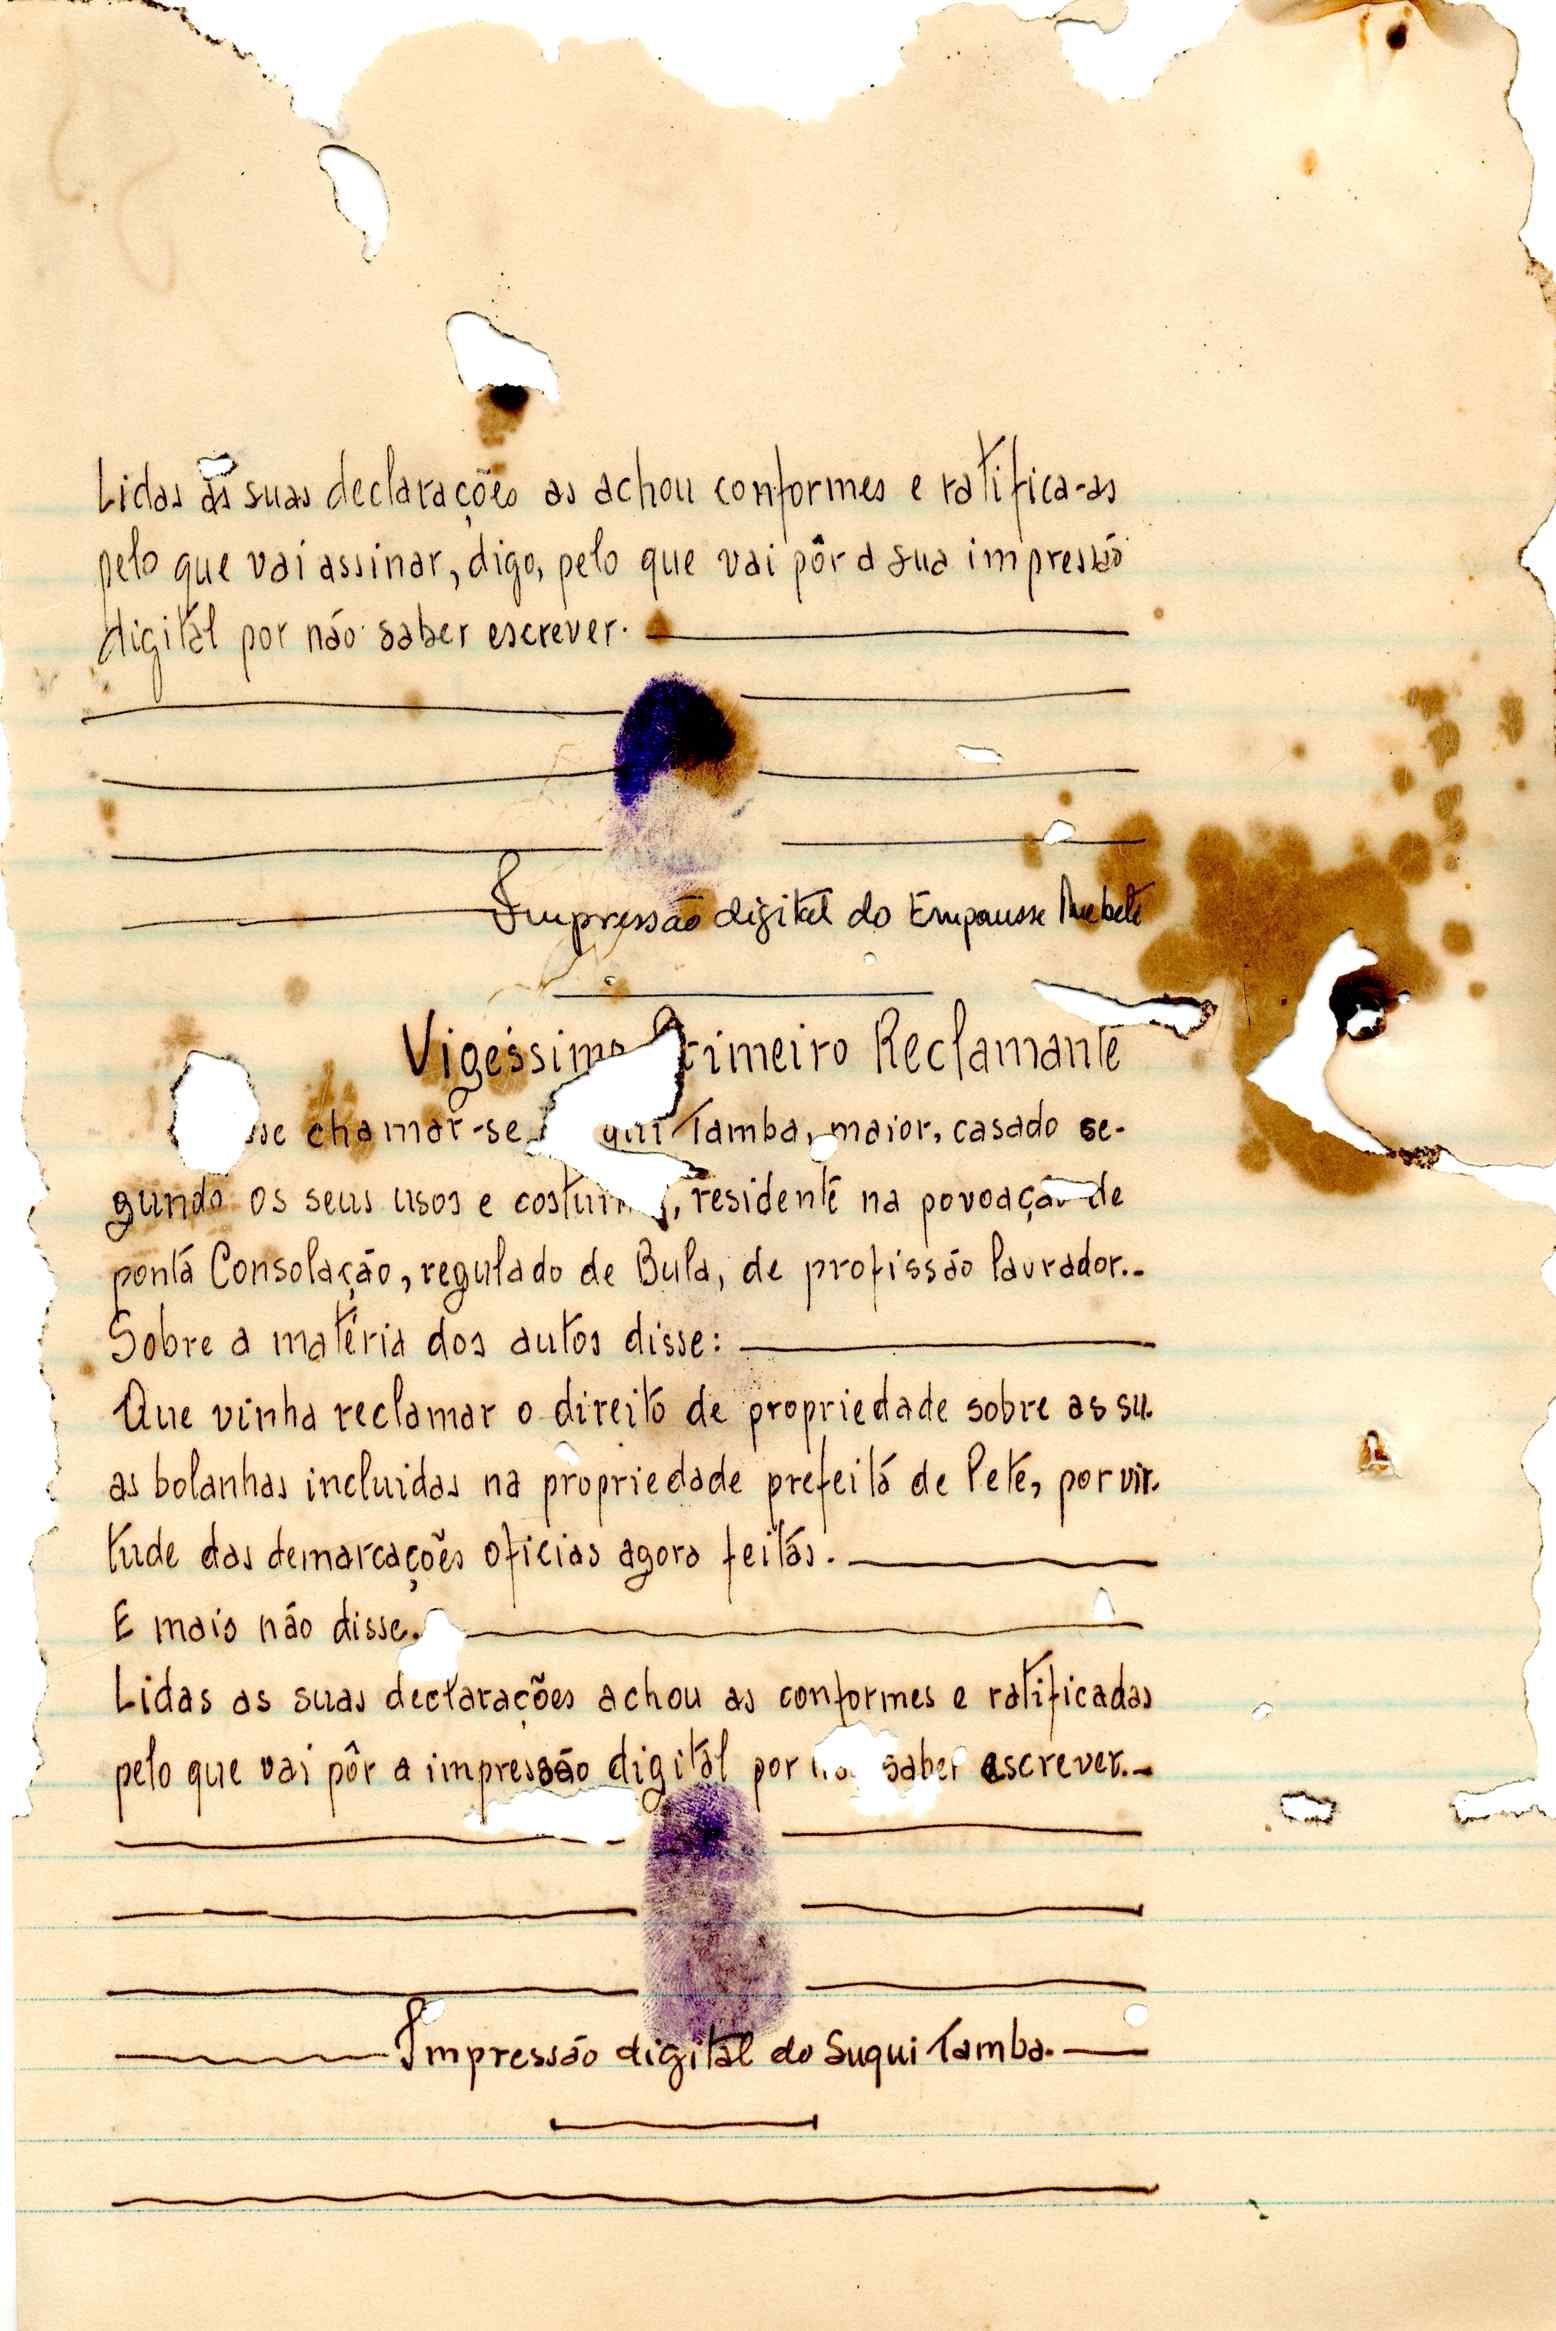 Lidas as suas declarações as achou conformes e ratifica-as
pelo que vai assinar, digo, pelo que vai pôr a sua impressão
digital por não saber escrever.
Impressão digital do Empausse
Vigessimo Primeiro Reclamante
sse chamar-se qui Tamba, maior, casado se-
gundo os seus usos e costumes, residente na povoação de
ponta Consolação, regulado de Bula, de profissão lavrador.-
Sobre a matéria dos autos disse:
Que vinha reclamar o direito de propriedade sobre as su-
as bolanhas incluidas na propriedade prefeita de Pete, por vir-
tude das demarcações oficias agora feitas.
E mais não disse.
Lidas as suas declarações achou as conformes e ratificadas
pelo que vai pôr a impressão digital por não saber escrever.-
Impressão digital do Suqui Tamba.